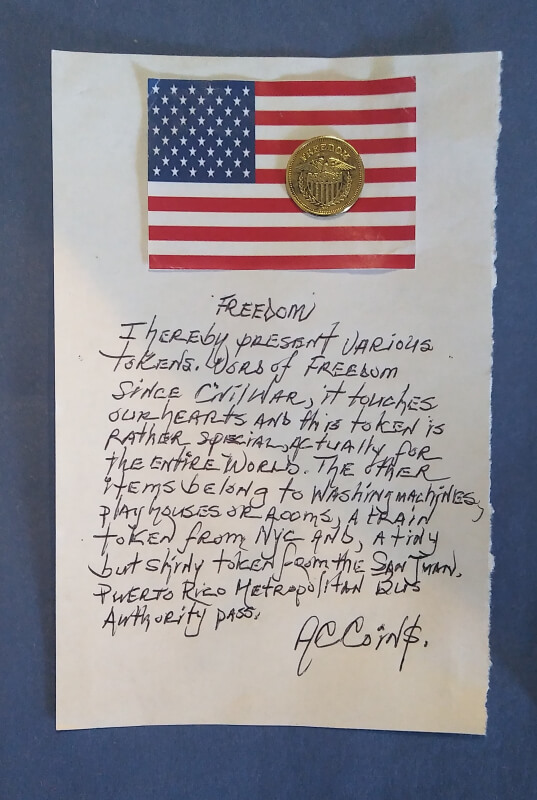 FREEDOM
FREEDOM
I hereby present various
tokens. Word of Freedom
since Civil War, it touches
our hearts and this token is
rather special, actually for
the entire world. The other
items belong to washing machines,
play houses or rooms, a train
token from NYC and, a tiny
but shiny token from the San Juan,
Puerto Rico Metropolitan Bus
Authority pass.
ACCoin$.